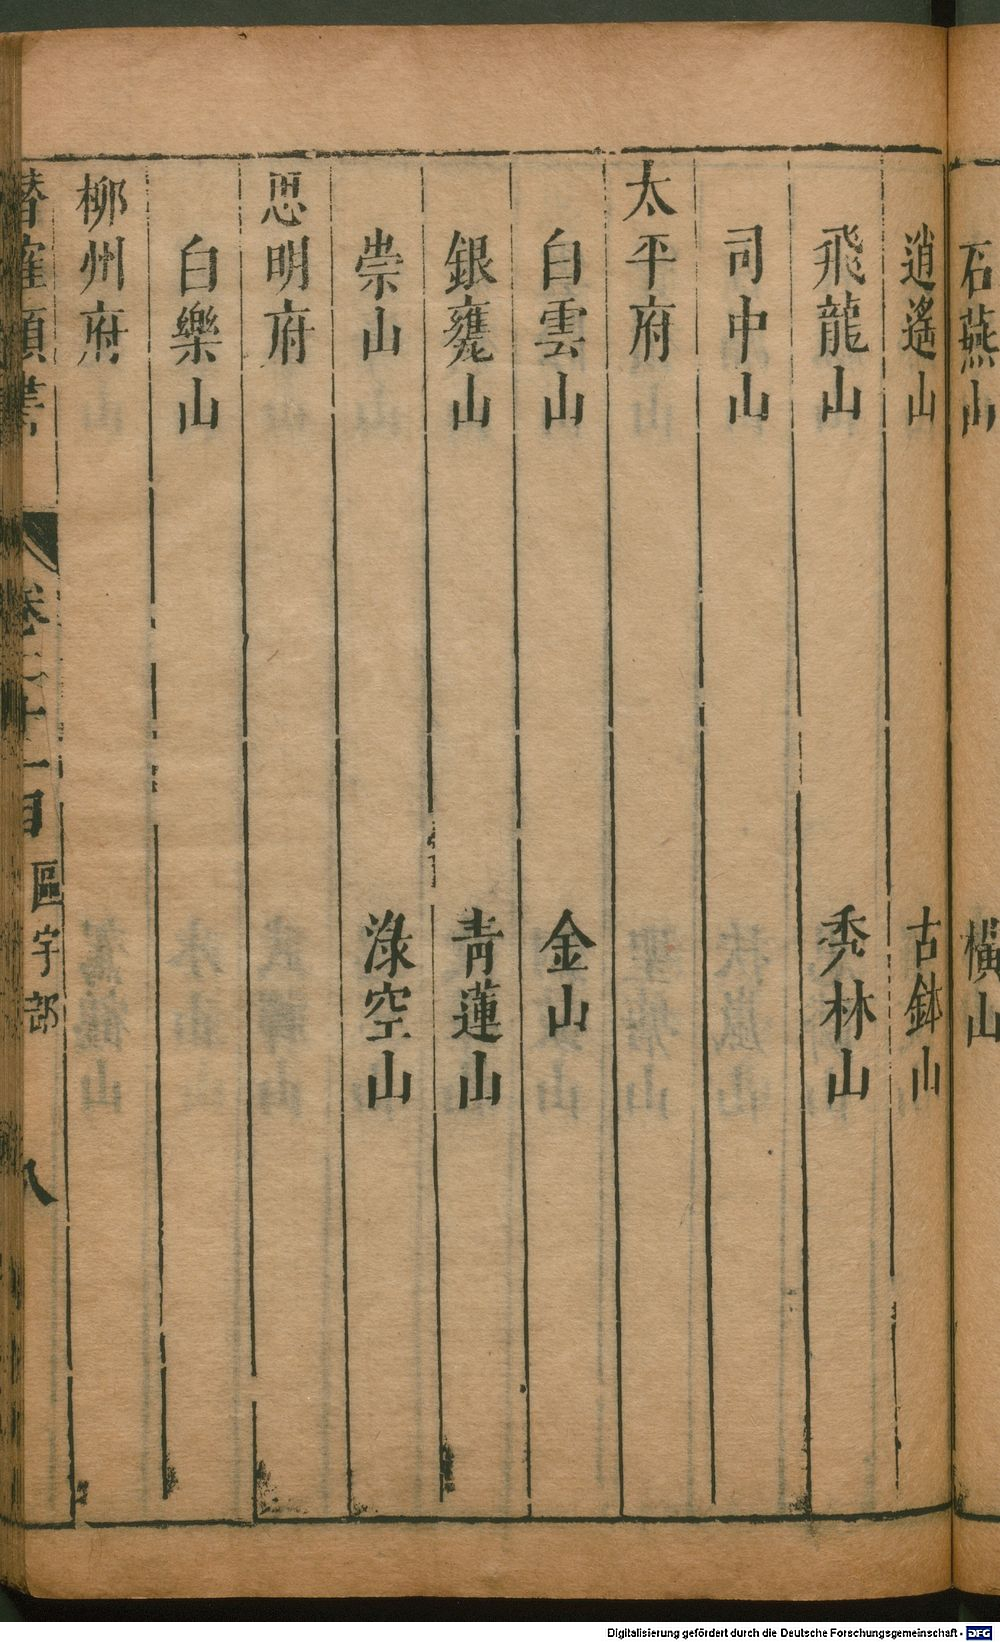 石燕山　橫山
逍遙山　古鉢山
飛龍山　秀林山
司中山
太平府
白雲山　金山
銀甕山　青蓮山
崇山　淥空山
思明府
白樂山
柳州府
潛確類書　卷二十一目　區宇部　八
Digitalisierung gefördert durch die Deutsche Forschungsgemeinschaft - DFG